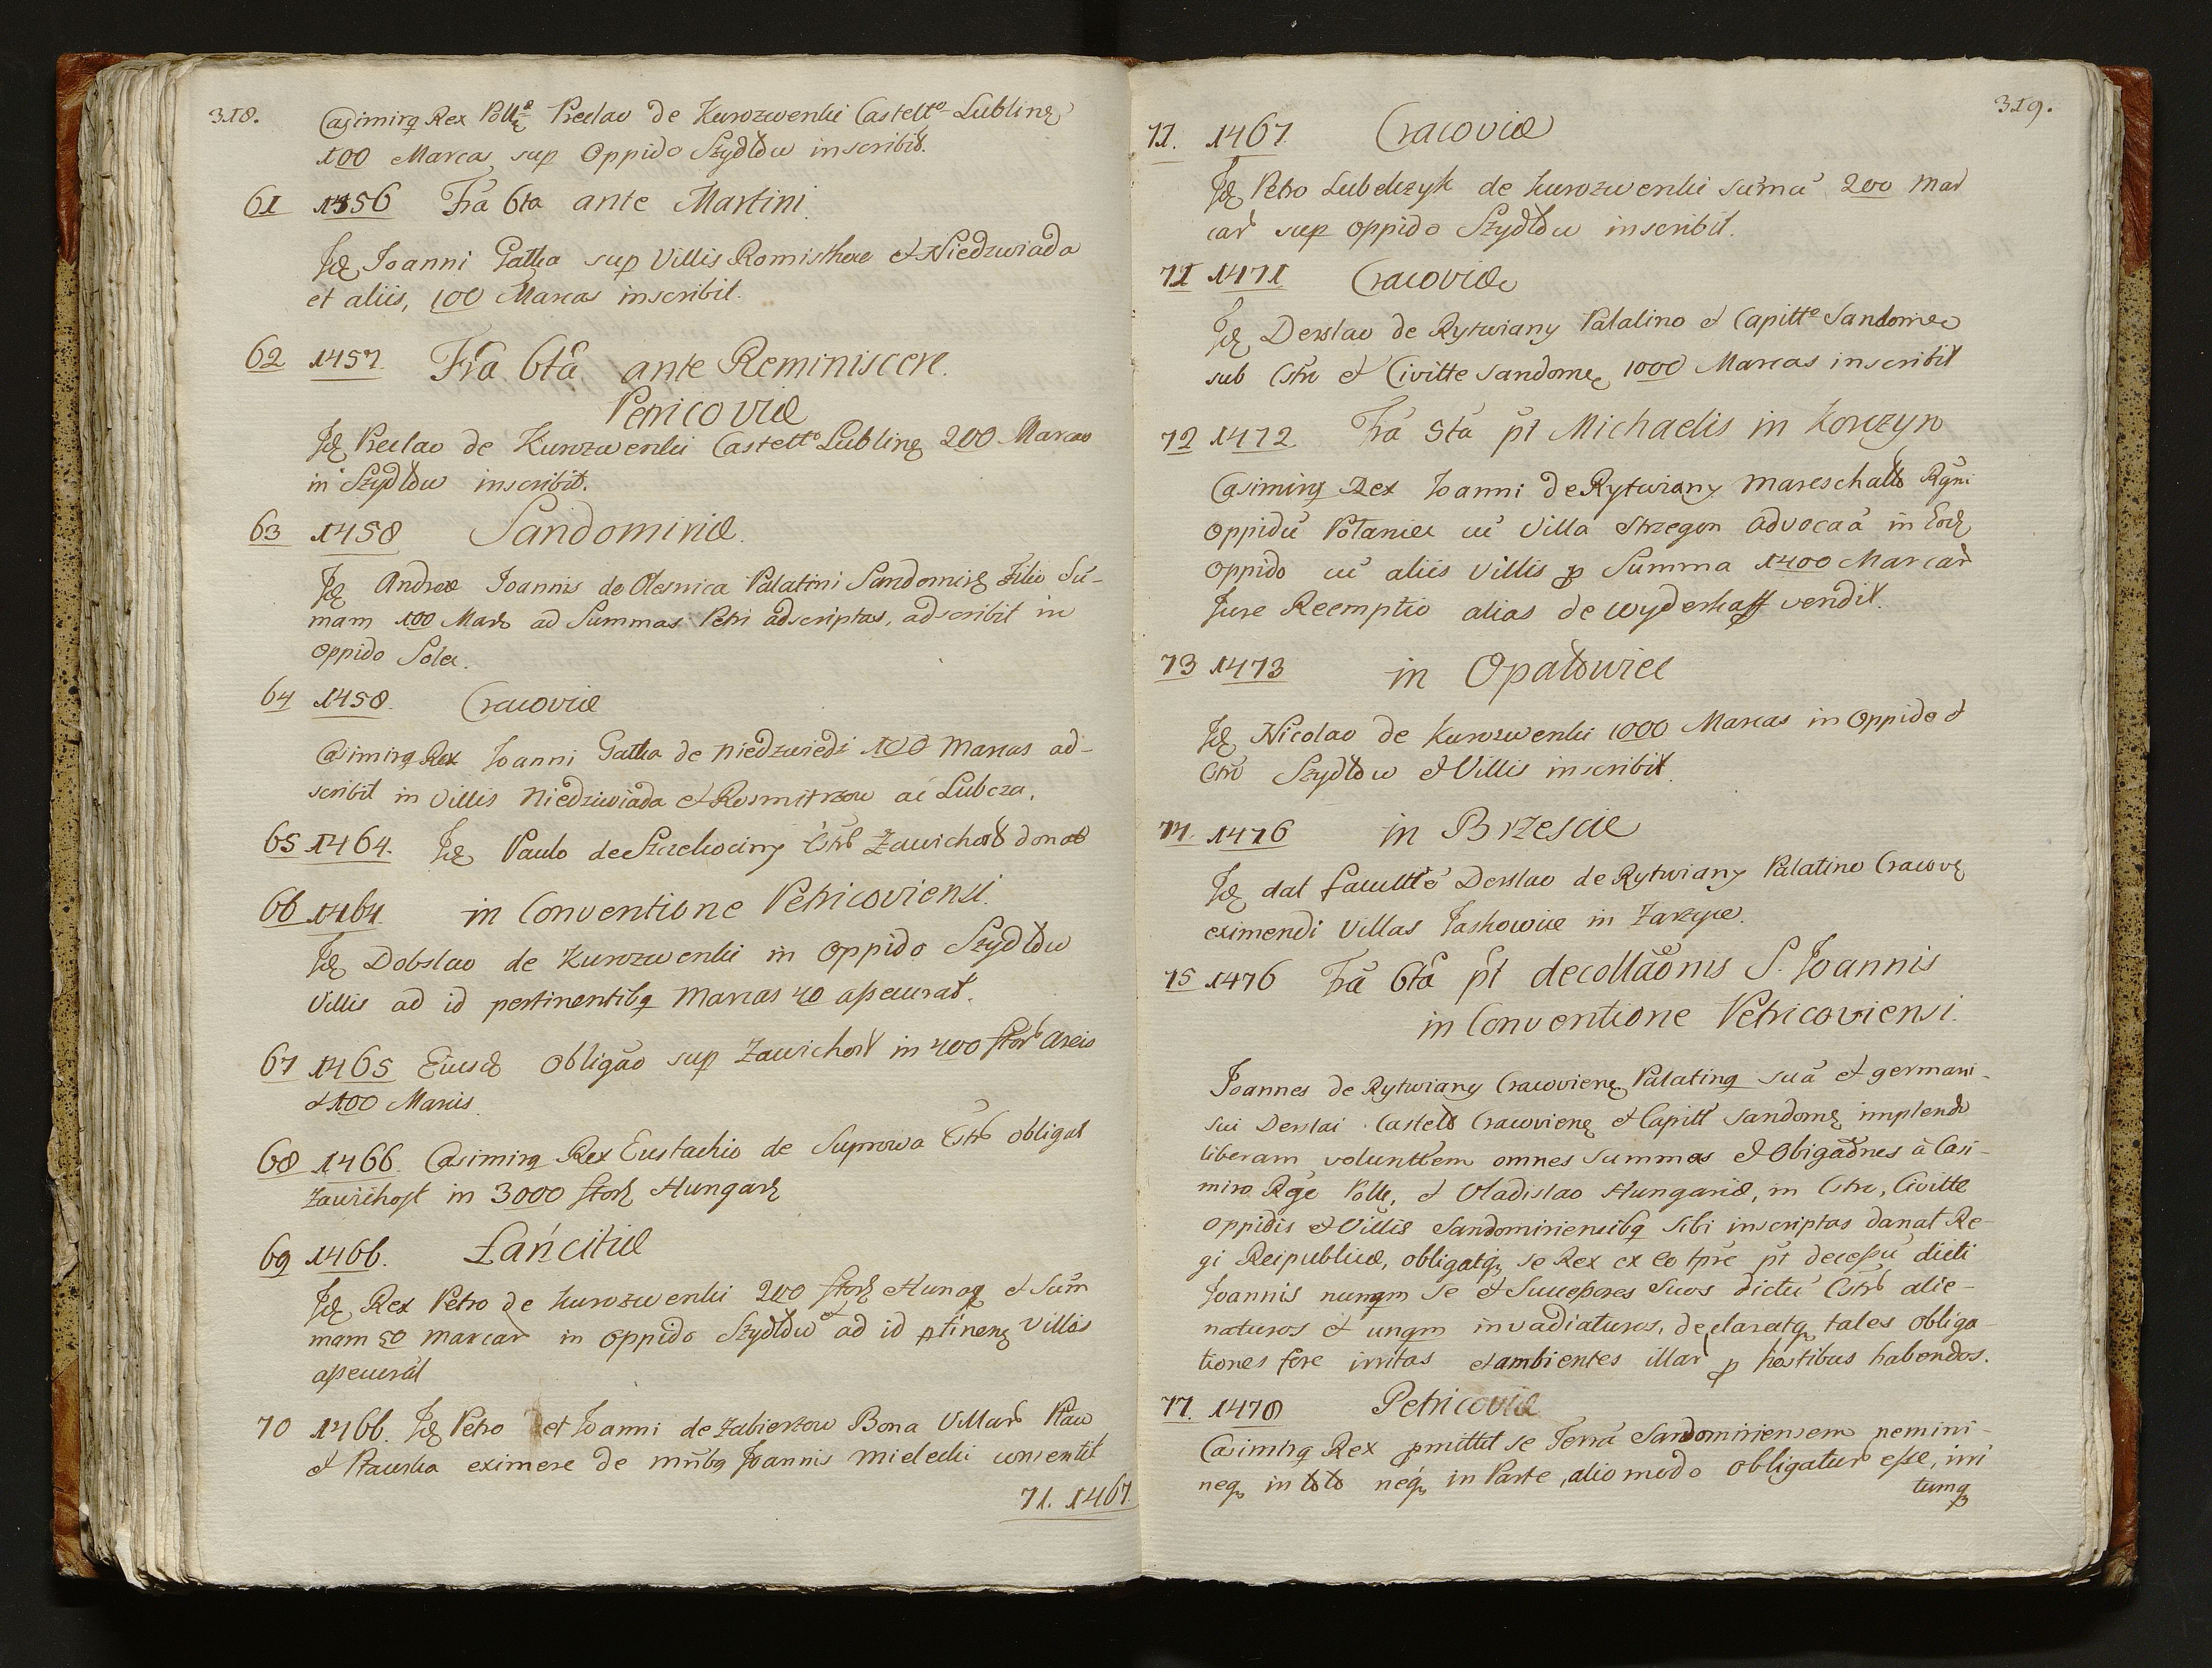 318.
Casimirꝗ Rex Pollę Preclao de Kurozwenki Castellº Lublinę
100 Marcas sup Oppido Szydłow inscribit.
61 1456 Fra 6ta ante Martini
Idę Joanni Gałka sup Villis Romisthew et Niedzwiada
et aliis, 100 Marcas inscribit.
62 1457. Fra 6ta ante Reminiscere.
Petricoviæ
Idę Preclao de Kurozwenki Castellº Lublinę 200 Marcas
in Szydłow inscribit.
63 1458 Sandomiriæ.
Idę Andreæ Joannis de Olesnica Palatini Sandomirę Filio Su-
mam 100 Marc ad Summas Petri adscriptas, adscribit in
Oppido Solec.
64 1458. Cracoviæ
Casimirꝗ Rex Joanni Gałka de Niedzwiedz 100 Marcas ad-
scribit in Villis Niedziwiada et Rosmitrzow ac Lubcza.
65 1464. Idę Paulo de Szczekociny Cstr Zawichost donat
66 1464. in Conventione Petricoviensi.
Idę Dobslao de Kurozwenki in Oppido Szydłow
Villis ad id pertinentibꝗ Marcas 40 assecurat.
67 1465 Eiusdę Obligao sup Zawichost in 400 flor Aureis
et 100 Marcis.
68 1466. Casimirꝗ Rex Eustachio de Suprowa Cstr obligat
Zawichost in 3000 florę Hungarę
69 1466. Łańcitiæ
Idę Rex Petro de Kurozwenki 200 florę Hungę et Sum
mam 50 marcar in Oppido Szydłow et ad id ptinenę Villis
assecurat
70 1466. Idę Petro et Joanni de Zabierzow Bona Villar Ptaw
et Ptawska eximere de mnibꝗ Joannis Mielecki consentit
71. 1467.
319.
71. 1467. Cracoviæ
Idę Petro Lubelczyk de Kurozwenki suma 200 Mar
car sup oppido Szydłow inscribit.
71 1471 Cracoviæ
Idę Derslao de Rytwiany Palatino et Capittº Sandomirę
sub Cstro et Civitte Sandomę 1000 Marcas inscribit
72 1472 Fra 3ta pt Michaelis in Korczyn
Casimirꝗ Rex Joanni de Rytwiany Mareschallo Rgni
Oppidu Połaniec cu Villa Strzegon advocaa in Eodę
Oppido cu aliis Villis p Summa 1400 Marcar
Jure Reemptio alias de wyderkaff vendit.
73 1473 in Opatowiec
Idę Nicolao de Kurozwenki 1000 Marcas in Oppido et
Cstro Szydłow et Villis inscribit.
74. 1476 in Brzescie
Idę dat facultte Derslao de Rytwiany Palatino Cracovę
eximendi Villas Jaskowice in Zarzyce.
75 1476 Fra 6ta pt decollaonis S. Joannis
in Conventione Petricoviensi.
Joannes de Rytwiany Cracovienę Palatinꝗ sua et germani-
sui Derslai Castell Cracovienę et Capitt Sandomę implendo
liberam volunttem omnes Summas et Obigaones à Casi-
miro Rge Polłę, et Vladislao Hungariæ, in Cstro, Civitte
Oppidis et Villis Sandomiriensibꝗ sibi inscriptas donat Re-
gi Reipublicæ, obligatꝗ se Rex ex eo tpre pt decessu dicti
Joannis nunqm se et Successores Suos dictu Cstr alie-
naturos et unqm invadiaturos, declaratꝗ tales obliga-
tiones fore irritas et ambientes illar p hostibus habendos.
77. 1478 Petricoviæ
Casimirꝗ Rex pmittit se Terra Sandomiriensem nemini-
neꝗ in toto neꝗ in Parte, alio modo Obligatur esse, irri
tumꝗ